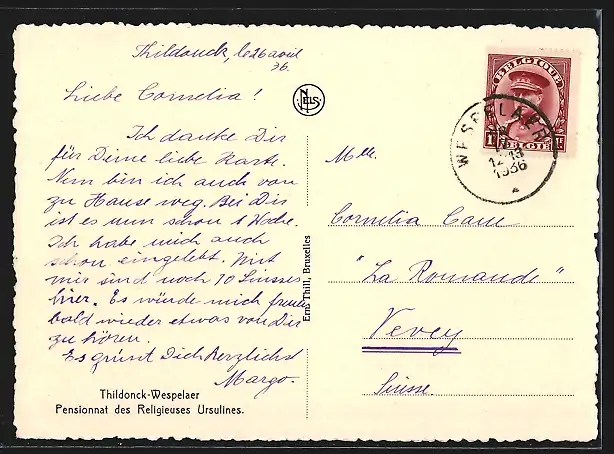 Thildonck, le 26 avril
36.
Liebe Cornelia!
Ich danke Dir
für Deine liebe Karte.
Nun bin ich auch von
zu Hause weg. Bei Dir
ist es nun schon 1 Woche.
Ich habe mich auch
schon eingelebt. Mit
mir sind noch 10 Suisses
hier. Es würde mich freuen
bald wieder etwas von Dir
zu hören.
Es grüsst Dich Herzlichst
Margo.
Thildonck-Wespelaer
Pensionnat des Religieuses Ursulines.
NELS
Ern. Thill, Bruxelles
BELGIQUE
1F
BELGIË
WESPELAER
12-13
1936
Mlle.
Cornelia
"La Romande"
Vevey
Suisse